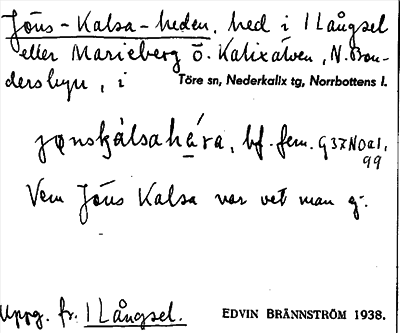 Jöns-Kalsa-heden, hed i 1 Långsel
eller Marieberg ö. Kalixälven, N. Bon-
dersbyn, i Töre sn, Nederkalix tg, Norrbottens l.
bf. fem.
99
Vem Jöns Kalsa var vet man ej.
Uppg. fr. 1 Långsel. EDVIN BRÄNNSTRÖM 1938.